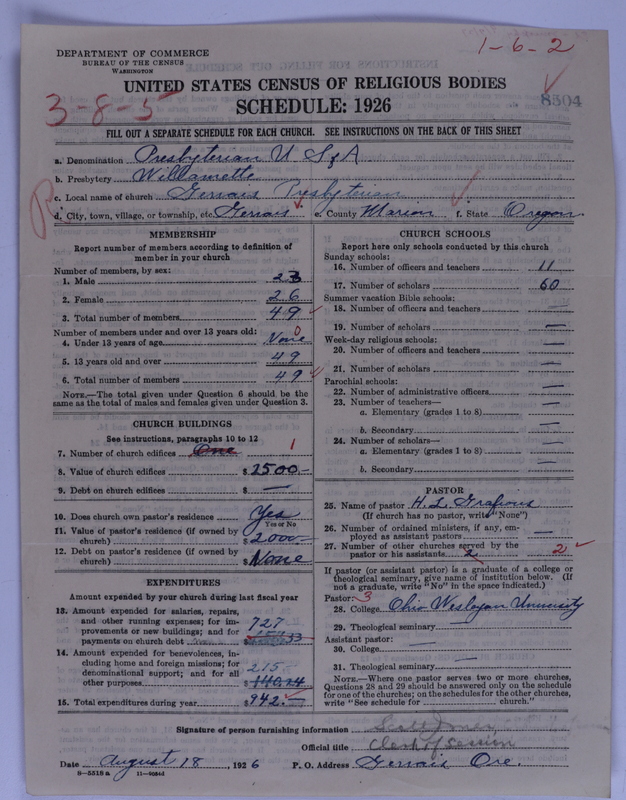 1-6-2
DEPARTMENT OF COMMERCE
BUREAU OF THE CENSUS
WASHINGTON
UNITED STATES CENSUS OF RELIGIOUS BODIES
SCHEDULE: 1926
8504
3-8-5
FILL OUT A SEPARATE SCHEDULE FOR EACH CHURCH. SEE INSTRUCTIONS ON THE BACK OF THIS SHEET
a. Denomination Presbyterian U S of A
b. Presbytery Willamette
c. Local name of church Gervais Presbyterian
d. City, town, village, or township, etc. Gervais e. County Marion f. State Oregon
MEMBERSHIP
Report number of members according to definition of
member in your church
Number of members, by sex:
1. Male 23
2. Female 26
3. Total number of members 49
Number of members under and over 13 years old:
4. Under 13 years of age None 0
5. 13 years old and over 49
6. Total number of members 49
NOTE.—The total given under Question 6 should be
same as the total of males and females given under Question 3.
CHURCH BUILDINGS
See instructions, paragraphs 10 to 12
7. Number of church edifices One 1
8. Value of church edifices $2500—
9. Debt on church edifices $ —
10. Does church own pastor's residence Yes
Yes or No
11. Value of pastor's residence (if owned by
church) $2000—
12. Debt on pastor's residence (if owned by
church) $None
EXPENDITURES
Amount expended by your church during last fiscal year
13. Amount expended for salaries, repairs,
and other running expenses; for im-
provements or new buildings; and for
payments on church debt 727
14. Amount expended for benevolences, in-
cluding home and foreign missions; for
denominational support; and for all
other purposes 215
15. Total expenditures during year $942.—
CHURCH SCHOOLS
Report here only schools conducted by this church
Sunday schools:
16. Number of officers and teachers 11
17. Number of scholars 60
Summer vacation Bible schools:
18. Number of officers and teachers —
19. Number of scholars —
Week-day religious schools:
20. Number of officers and teachers —
21. Number of scholars —
Parochial schools:
22. Number of administrative officers —
23. Number of teachers—
a. Elementary (grades 1 to 8) —
b. Secondary —
24. Number of scholars—
a. Elementary (grades 1 to 8) —
b. Secondary —
PASTOR
25. Name of pastor H. L. Grafious
(If church has no pastor, write "None")
26. Number of ordained ministers, if any, em-
ployed as assistant pastors —
27. Number of other churches served by the
pastor or his assistants 2 2
If pastor (or assistant pastor) is a graduate of a college or
theological seminary, give name of institution below. (If
not a graduate, write "No" in the space indicated.)
Pastor: 3
28. College Ohio Wesleyan University
29. Theological seminary —
Assistant pastor:
30. College —
31. Theological seminary —
NOTE.—Where one pastor serves two or more churches,
Questions 28 and 29 should be answered only on the schedule
for one of the churches; on the schedules for the other churches,
write "See schedule for church."
Signature of person furnishing information
Official title Clerk of Session
Date August 18, 1926 P. O. Address Gervais Ore.
8-5518a 11-9054d